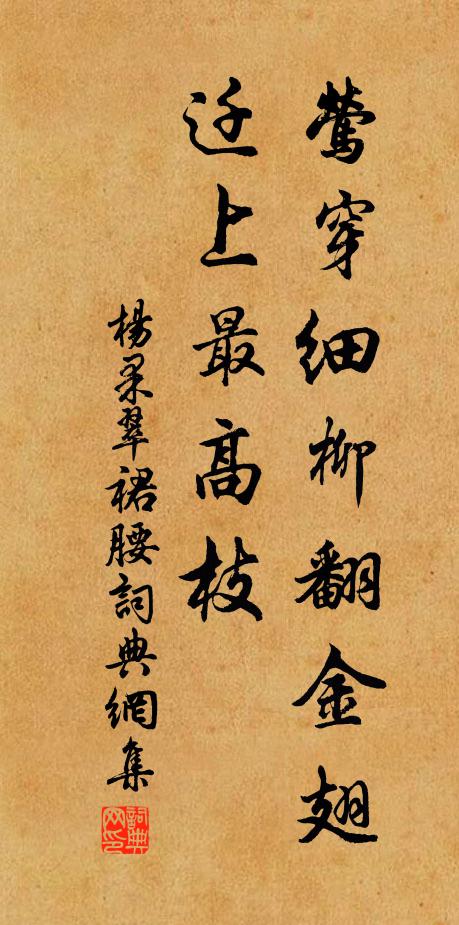 鶯穿細柳翻金翅
迁上最高枝
楊杲翠裙腰詞典網集
詞典网印